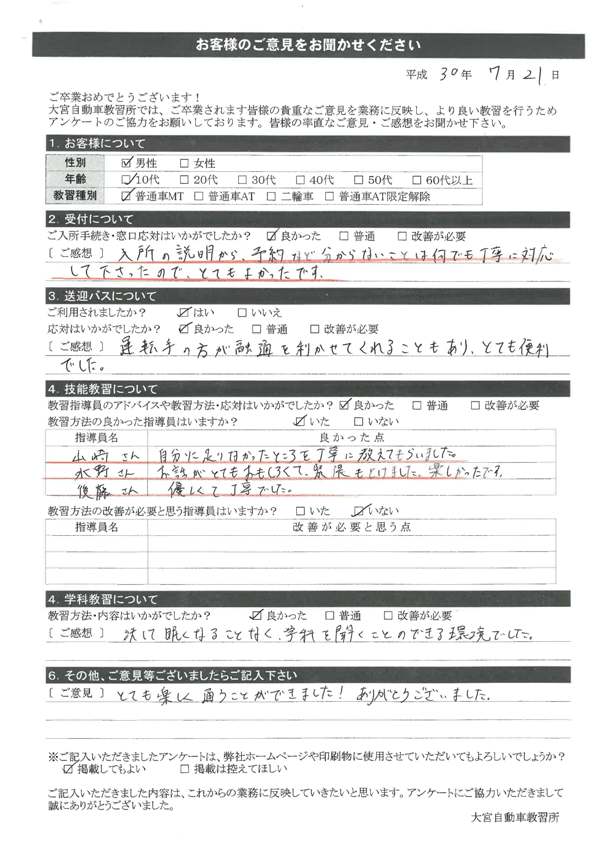 お客様のご意見をお聞かせください
平成 30年 7月21日
ご卒業おめでとうございます！
大宮自動車教習所では、ご卒業されます皆様の貴重なご意見を業務に反映し、より良い教習を行うため
アンケートのご協力をお願いしております。皆様の率直なご意見・ご感想をお聞かせ下さい。
1. お客様について
性別 ☑男性 □女性
年齢 ☑10代 □20代 □30代 □40代 □50代 □60代以上
教習種別 ☑普通車MT □普通車AT □二輪車 □普通車AT限定解除
2. 受付について
ご入所手続き・窓口応対はいかがでしたか？ ☑良かった □普通 □改善が必要
〔ご感想〕入所の説明から、予約など分からないことは何でも丁寧に対応
して下さったので、とてもよかったです。
3. 送迎バスについて
ご利用されましたか？ ☑はい □いいえ
応対はいかがでしたか？ ☑良かった □普通 □改善が必要
〔ご感想〕運転手の方が融通を利かせてくれることもあり、とても便利
でした。
4. 技能教習について
教習指導員のアドバイスや教習方法・応対はいかがでしたか？ ☑良かった □普通 □改善が必要
教習方法の良かった指導員はいますか？ ☑いた □いない
指導員名 良かった点
山崎さん 自分に足りなかったところを丁寧に教えてもらいました。
水野さん お話がとてもおもしろくて、緊張もとけました。楽しかったです。
後藤さん 優しくて丁寧でした。
教習方法の改善が必要と思う指導員はいますか？ □いた ☑いない
指導員名 改善が必要と思う点
4. 学科教習について
教習方法・内容はいかがでしたか？ ☑良かった □普通 □改善が必要
〔ご感想〕決して眠くなることなく、学科を聞くことのできる環境でした。
6. その他、ご意見等ございましたらご記入下さい
〔ご意見〕とても楽しく通うことができました！ありがとうございました。
※ご記入いただきましたアンケートは、弊社ホームページや印刷物に使用させていただいてもよろしいでしょうか？
☑掲載してもよい □掲載は控えてほしい
ご記入いただきました内容は、これからの業務に反映していきたいと思います。アンケートにご協力いただきまして
誠にありがとうございました。
大宮自動車教習所